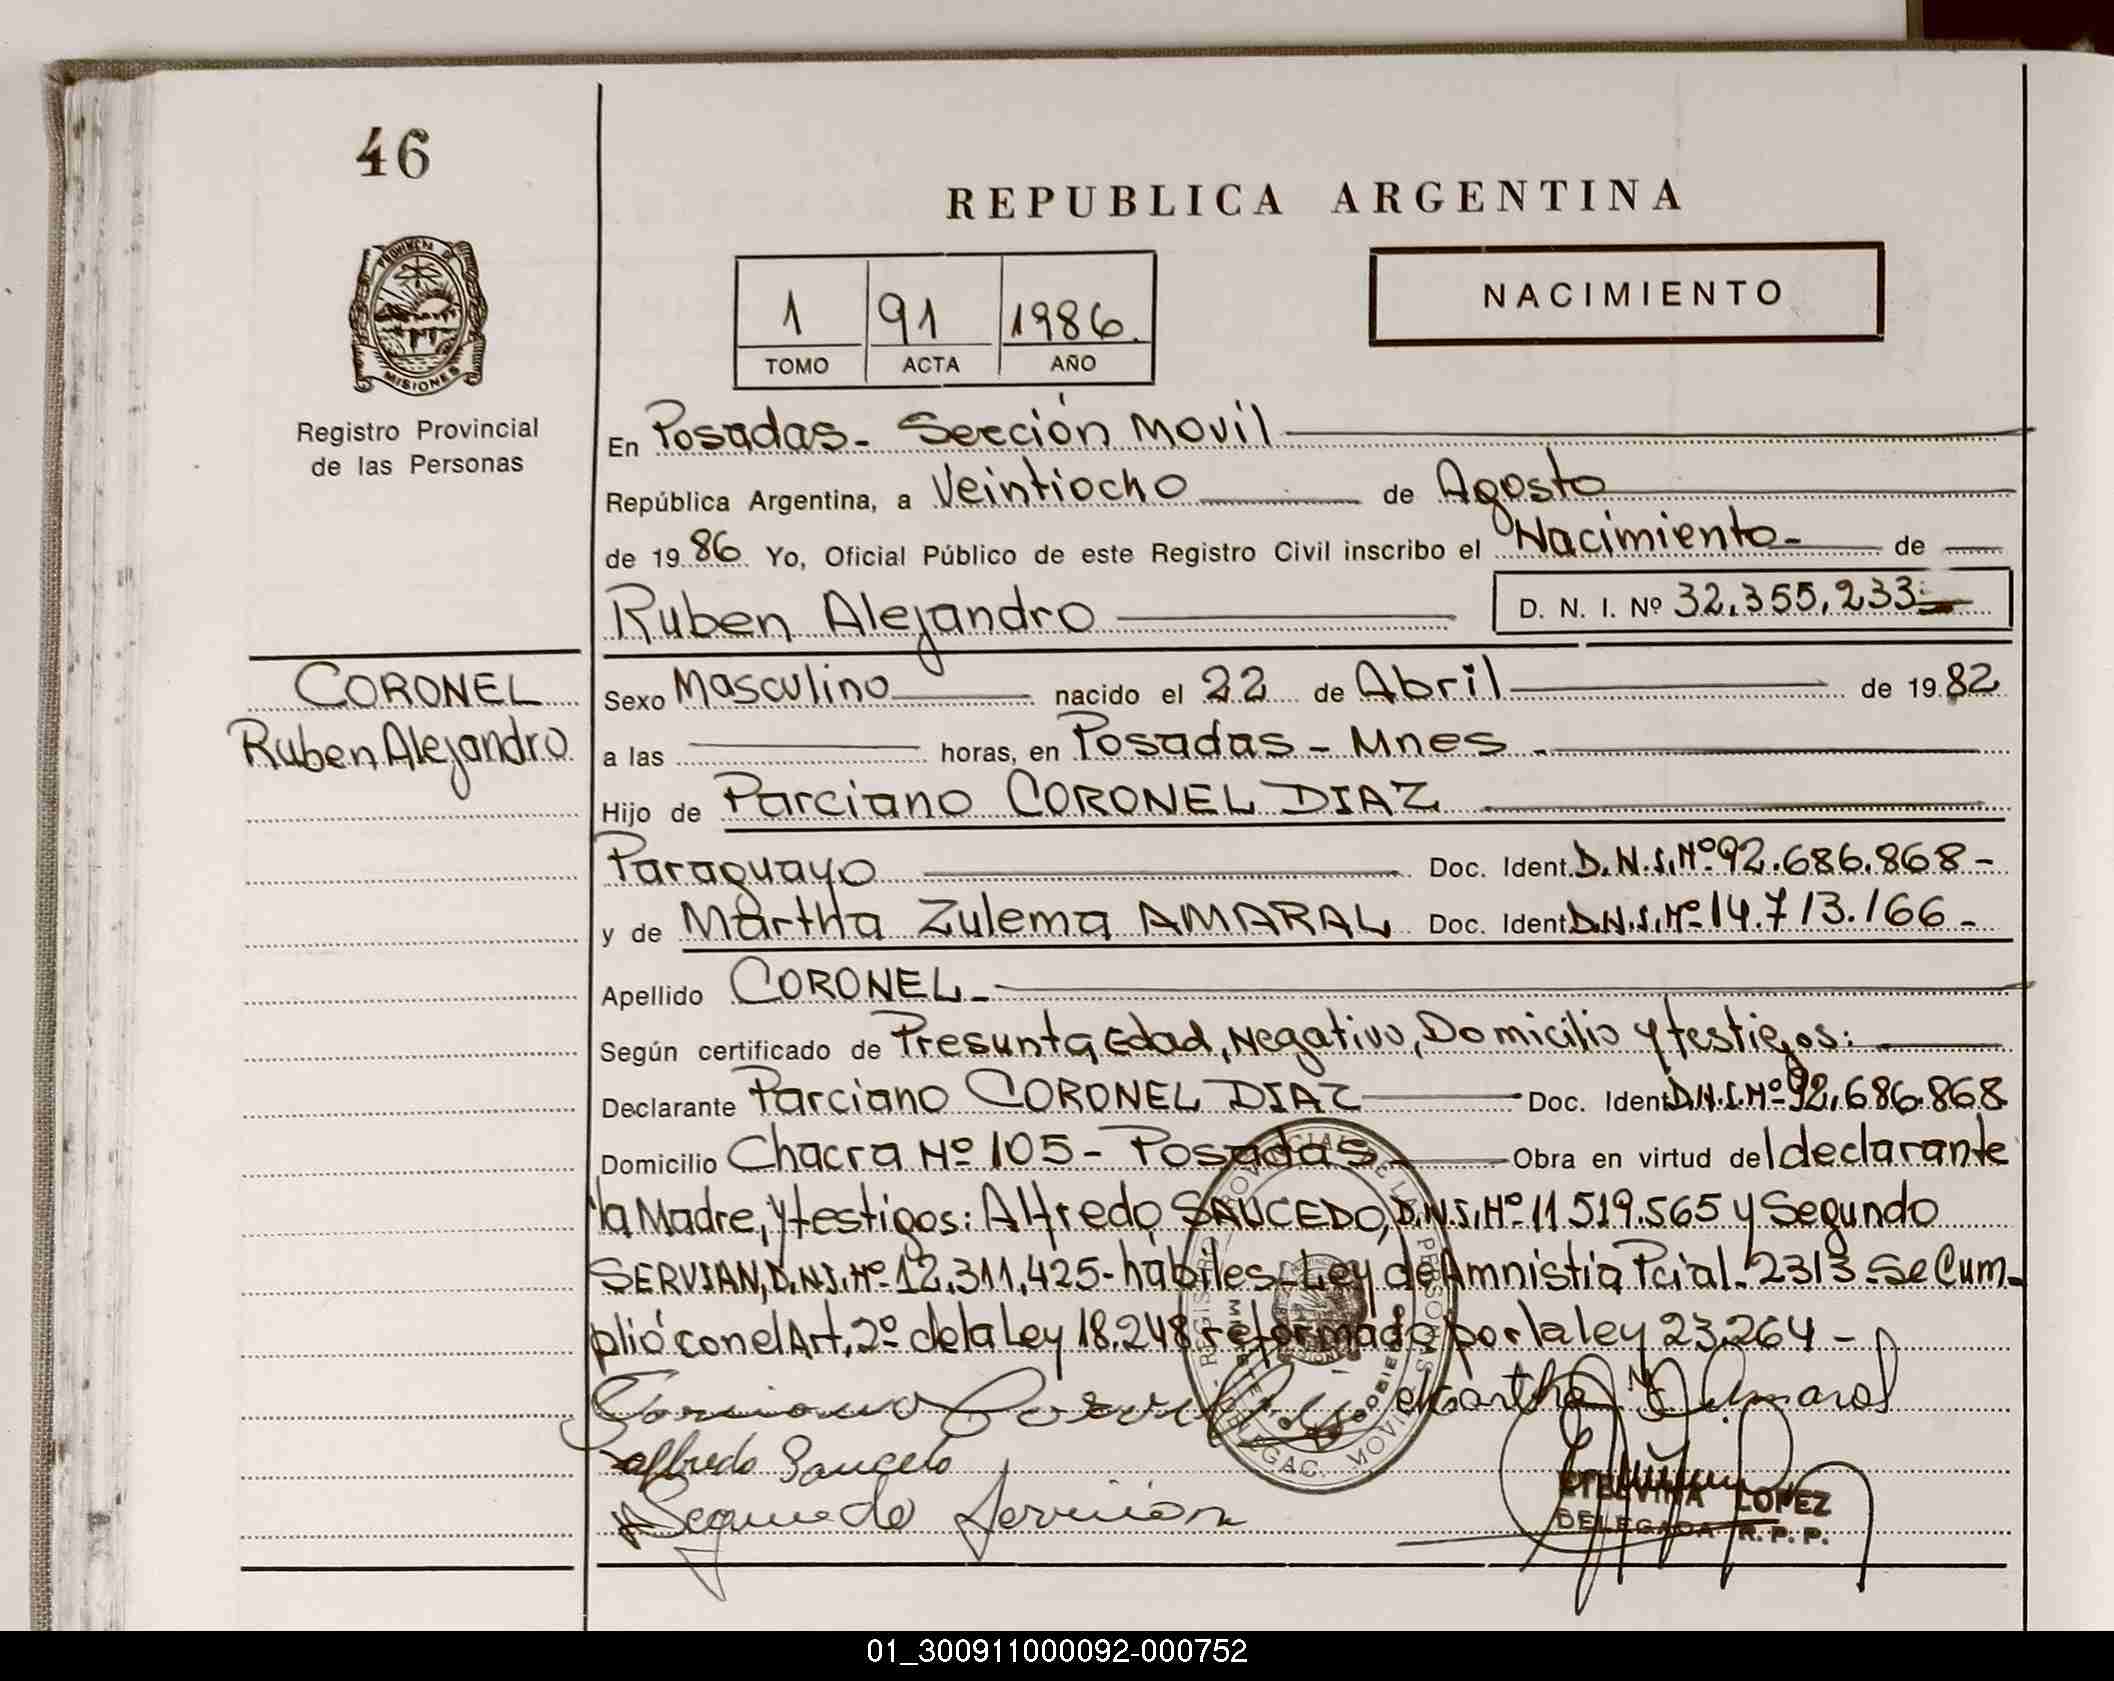 46
REPUBLICA ARGENTINA
PROVINCIA DE
MISIONES
1 91 1986.
TOMO ACTA AÑO
NACIMIENTO
Registro Provincial
de las Personas
En Posadas- Sección Movil
República Argentina, a Veintiocho de Agosto
de 19 86 Yo, Oficial Público de este Registro Civil inscribo el Nacimiento- de
Ruben Alejandro D. N. I. Nº 32.355.233-
CORONEL
Ruben Alejandro
Sexo Masculino nacido el 22 de Abril de 19 82
a las horas, en Posadas - Mnes -
Hijo de Parciano CORONEL DIAZ
Paraguayo Doc. Ident. D.N.I.Nº 92.686.868-
y de Martha Zulema AMARAL Doc. Ident D.N.I.Nº 14.713.166-
Apellido CORONEL-
Según certificado de Presunta Edad, Negativo, Domicilio y testigos:
Declarante Parciano CORONEL DIAZ Doc. Ident D.N.I.Nº 92.686.868
Domicilio Chacra Nº 105- Posadas- Obra en virtud del declarante
la Madre, y testigos: Alfredo SAUCEDO, D.N.I.Nº 11 519.565 y Segundo
SERVIAN, D.N.I.Nº 12.311.425- hábiles- Ley de Amnistia Pcial. 2313- Se Cum-
plió con el Art. 2º de la Ley 18.248 reformado por la ley 23.264-
Martha Z Amaral
Alfredo Saucedo
Segundo Servian
ETELVINA LOPEZ
DELEGADA R. P. P.
01_300911000092-000752